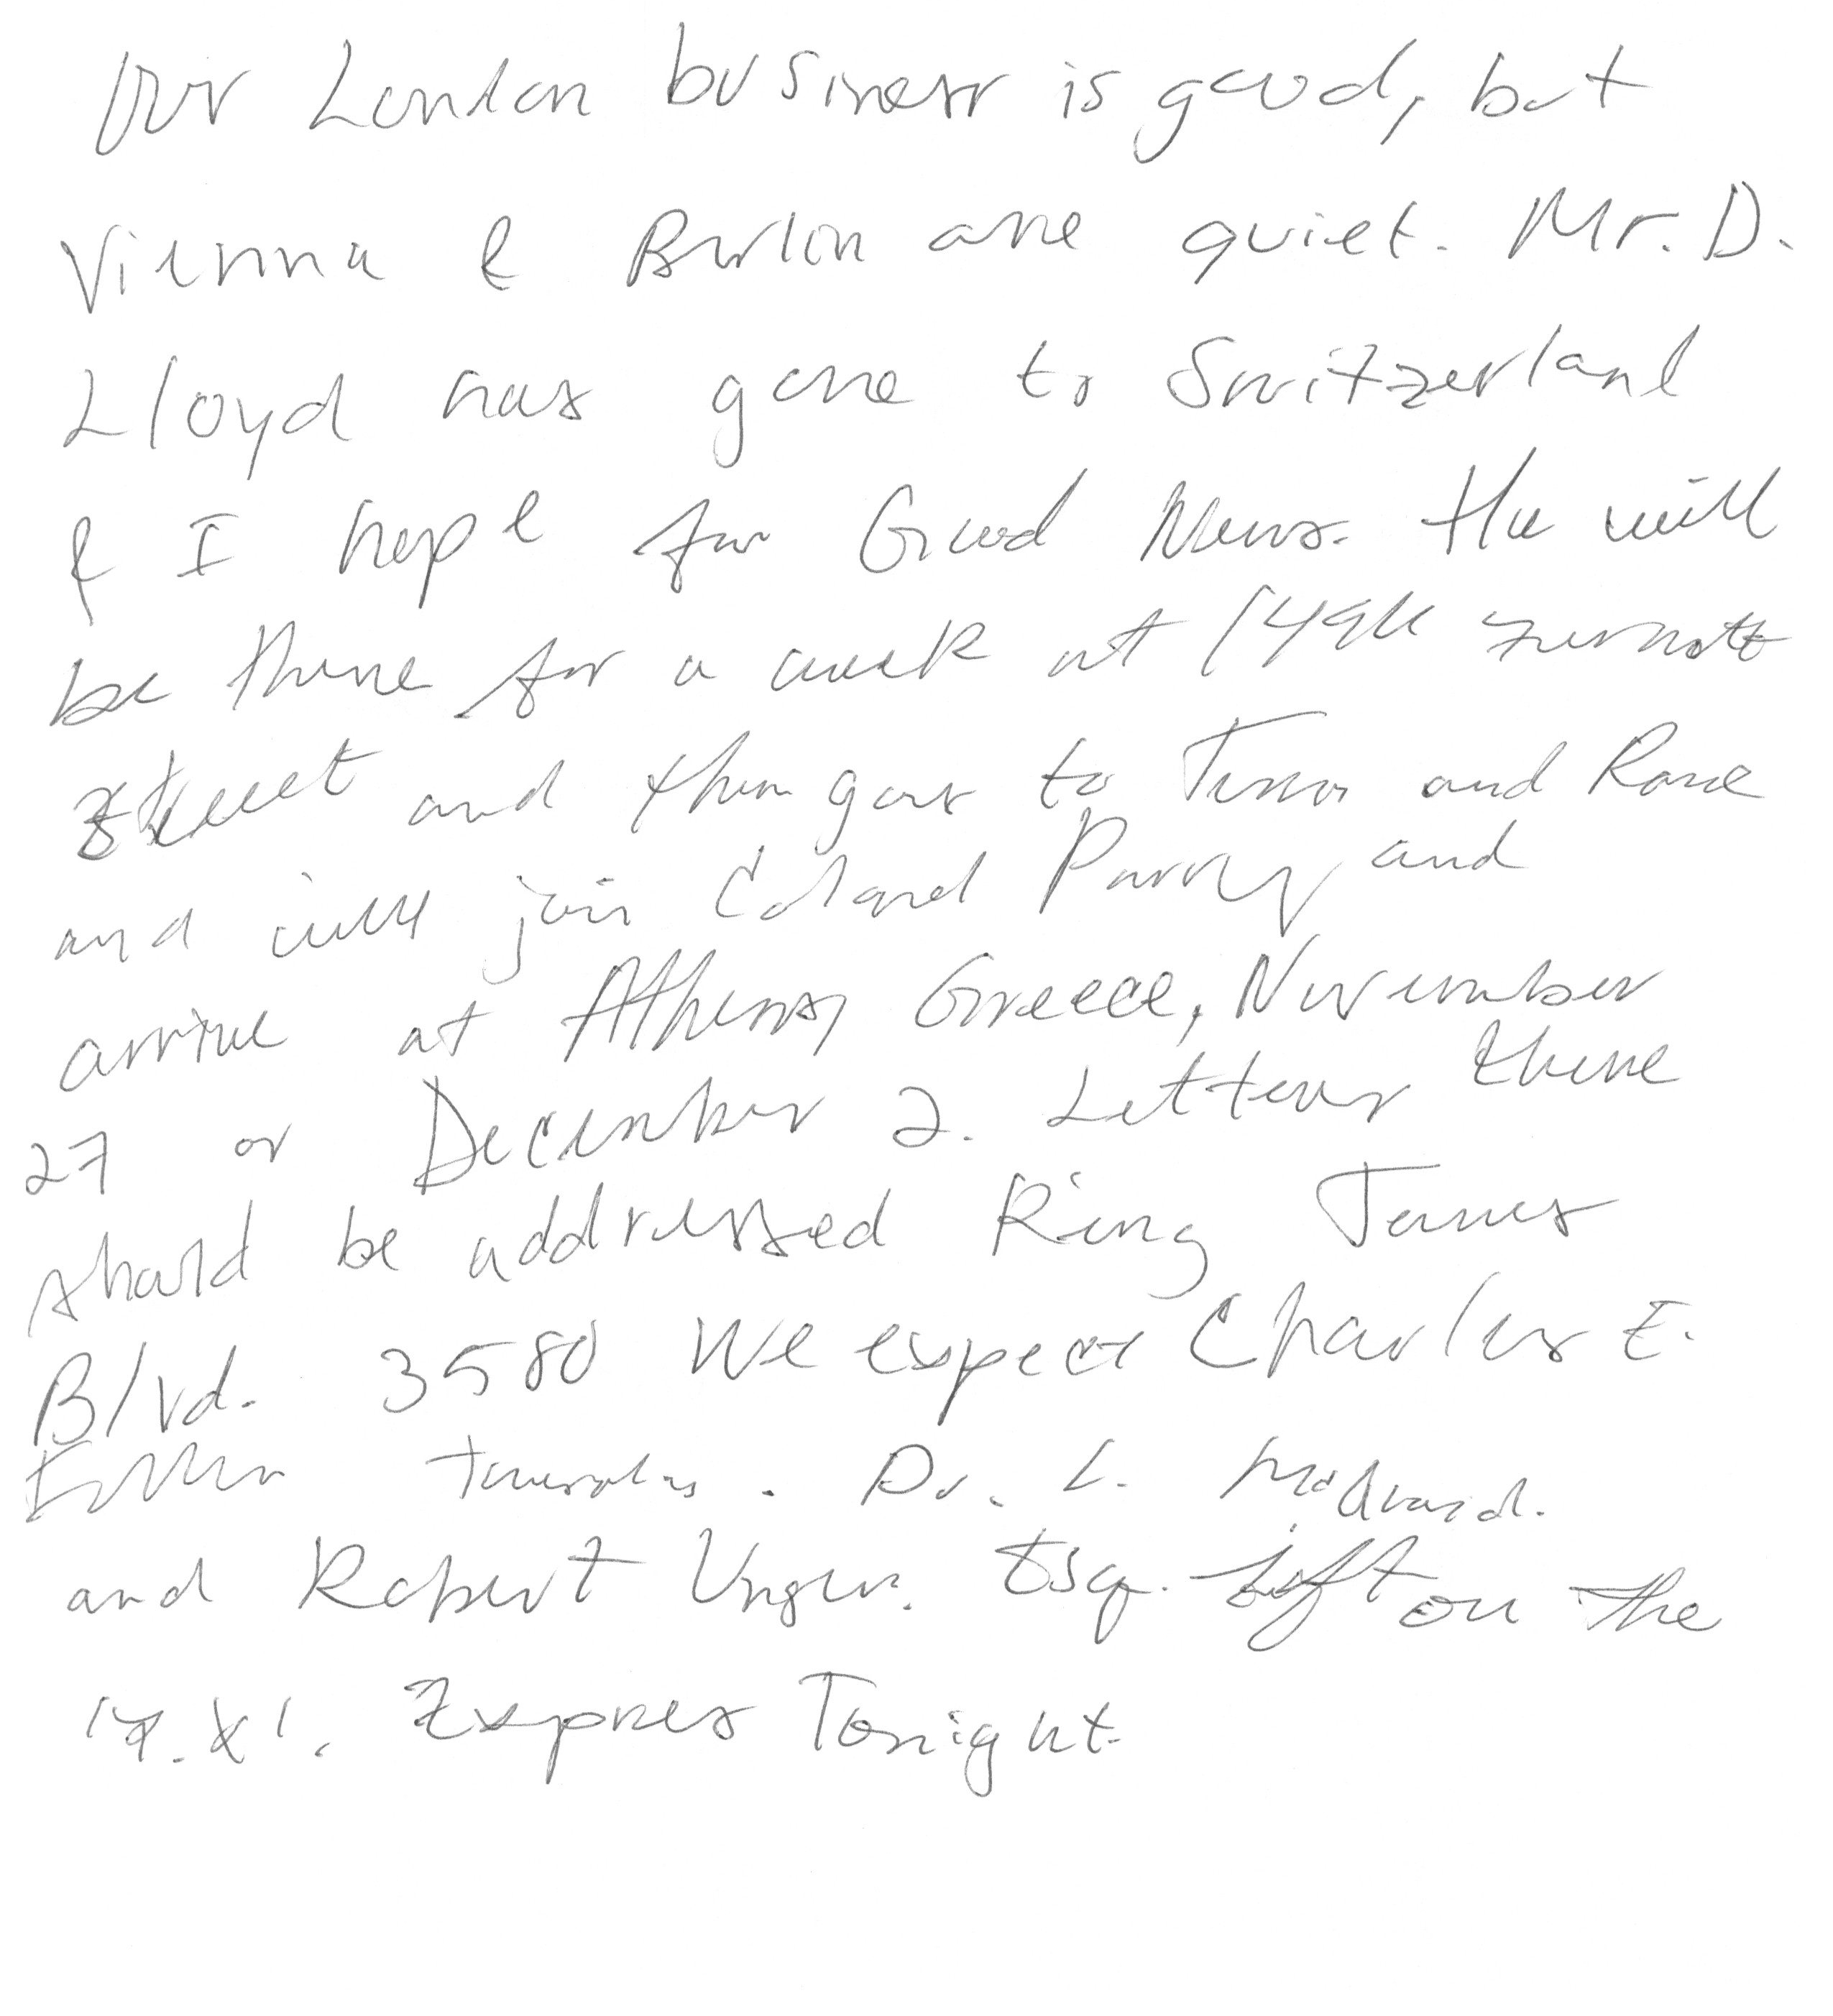 Our London business is good, but
Vienna & Berlin are quiet. Mr. D.
Lloyd has gone to Switzerland
& I hope for Good News. He will
be there for a week at 1496 Zermott
Street and then goes to Turin and Rome
and will join Colonel Parry and
arrive at Athens, Greece, November
27 or December 2. Letters there
should be addressed King James
Blvd. 3580 We expect Charles E.
Fuller Tuesday. Dr. L. McQuaid.
and Robert Unger. Esq. Left on the
Express Tonight.